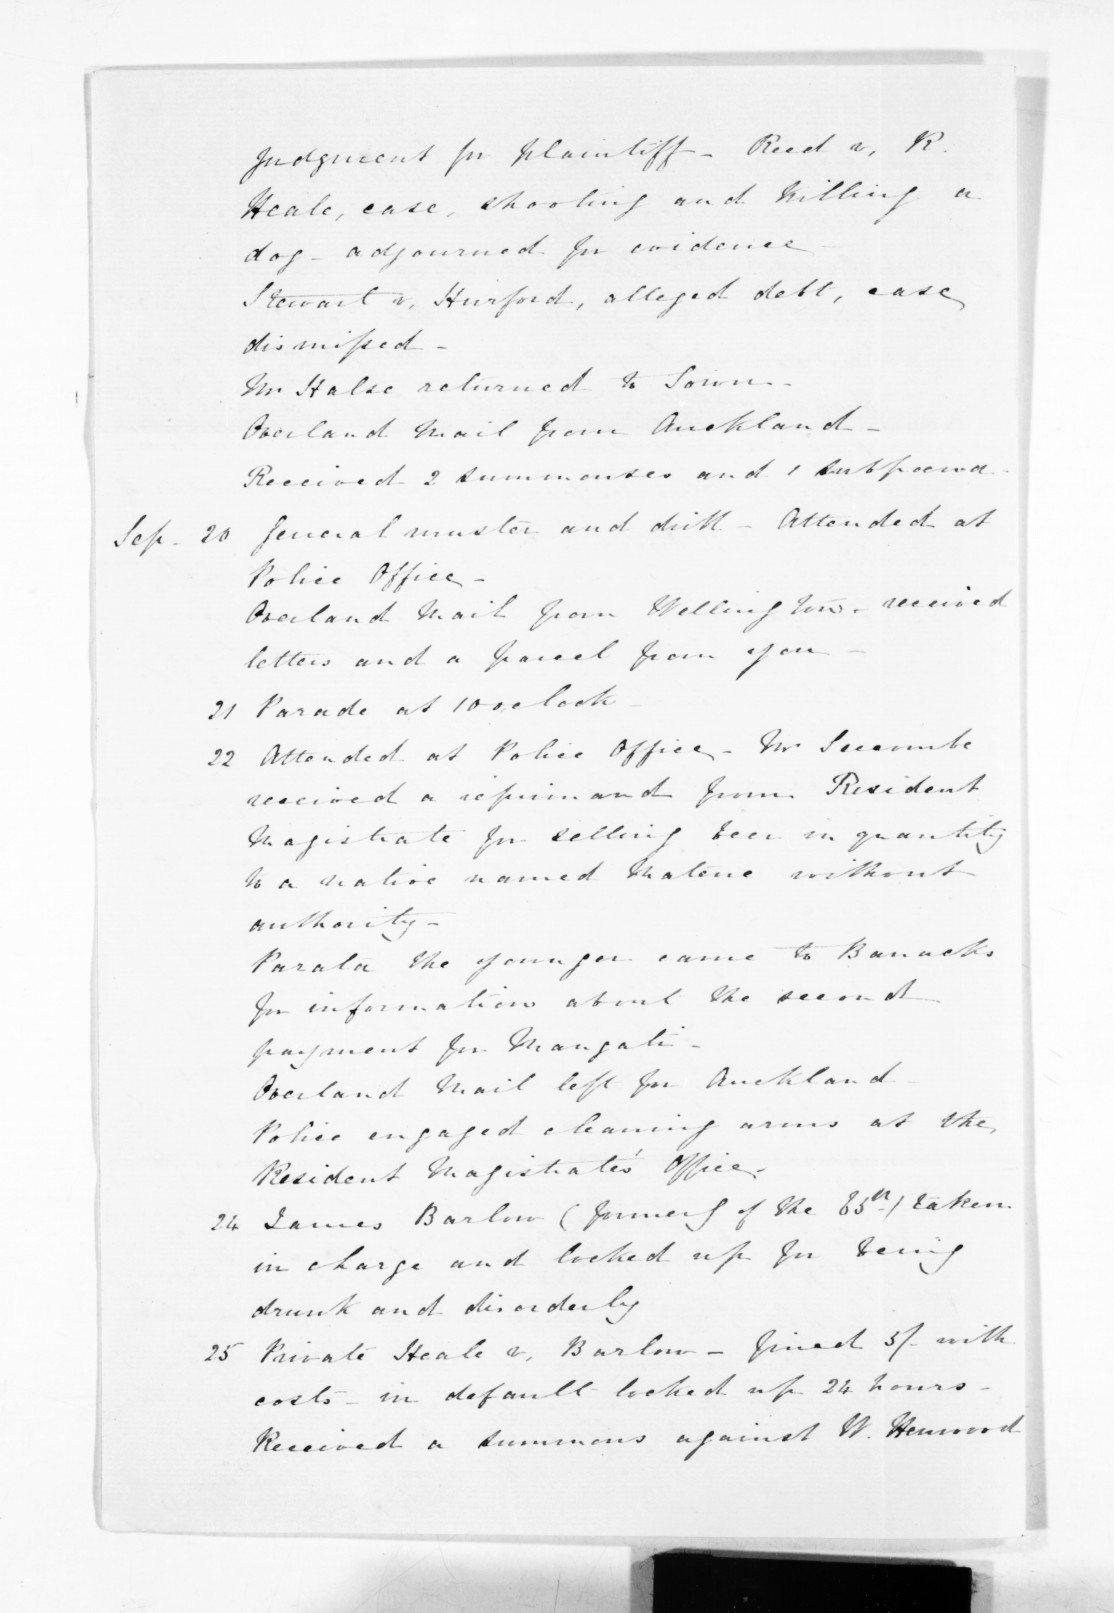 Judgment for plaintiff - Reed v. R.
Heale, case, shooting and killing a
dog - adjourned for evidence -
Stewart v. Hurford, alleged debt, case
dismissed -
Mr Halse returned to Town -
Overland Mail from Auckland -
Received 2 summonses and 1 subpoena -
Sep - 20 General muster and drill - Attended at
Police Office -
Overland Mail from Wellington - received
letters and a parcel from you -
21 Parade at 10 o,clock -
22 Attended at Police Office - Mr Seccombe
received a reprimand from Resident
Magistrate for selling beer in quantity
to a native named Matene without
authority -
Parata the younger came to Barracks
for information about the second
payment for Mangati -
Overland Mail left for Auckland -
Police engaged cleaning arms at the
Resident Magistrate's Office -
24 James Barlow (formerly of the 65th) taken
in charge and locked up for being
drunk and disorderly
25 Private Heale v. Barlow - fined 5/- with
costs - in default locked up 24 hours -
Received a summons against W. Henwood